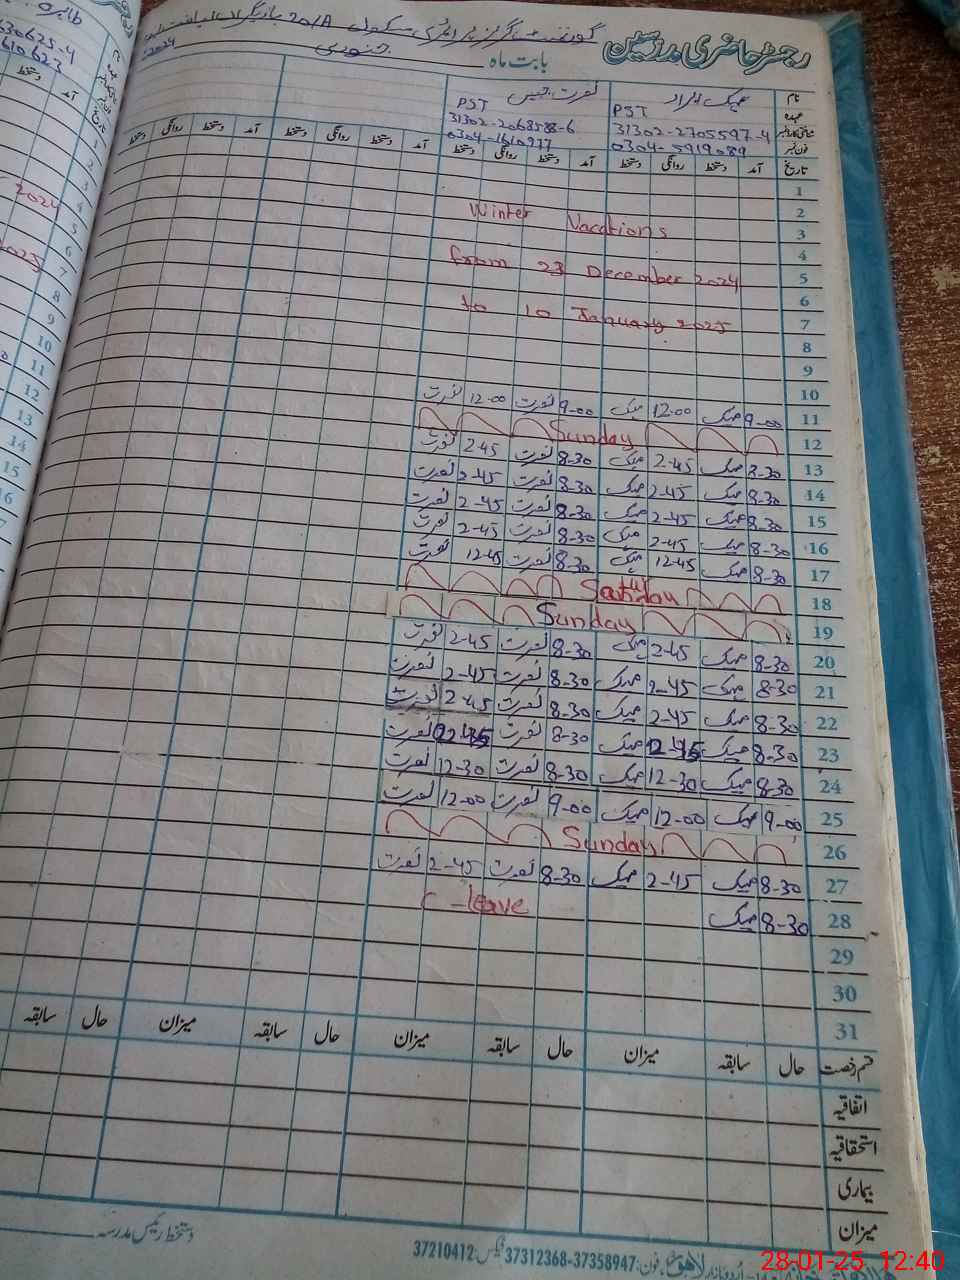 رجسٹر حاضری مدرسین
گورنمنٹ گرلز پرائمری سکول 201A
بابت ماہ جنوری 2024
نام
عہدہ PST PST
شناختی کارڈ نمبر 31302-2705597-4 31302-2068588-6
فون نمبر 0304-5919089 0304-1610977
تاریخ آمد دستخط روانگی دستخط آمد دستخط روانگی دستخط آمد دستخط روانگی دستخط آمد دستخط روانگی دستخط
1
2
Winter Vacations
3
4
From 23 December 2024
5
6
to 10 January 2025
7
8
9
10
11 9-00 مہک 12-00 مہک 9-00 نصرت 12-00 نصرت
12 Sunday
13 8-30 مہک 2-45 مہک 8-30 نصرت 2-45 نصرت
14 8-30 مہک 2-45 مہک 8-30 نصرت 2-45 نصرت
15 8-30 مہک 2-45 مہک 8-30 نصرت 2-45 نصرت
16 8-30 مہک 2-45 مہک 8-30 نصرت 2-45 نصرت
17 8-30 مہک 12-45 مہک 8-30 نصرت 12-45 نصرت
18
19 Sunday
20 8-30 مہک 2-45 مہک 8-30 نصرت 2-45 نصرت
21 8-30 مہک 2-45 مہک 8-30 نصرت 2-45 نصرت
22 8-30 مہک 2-45 مہک 8-30 نصرت 2-45 نصرت
23 8-30 مہک مہک 8-30 نصرت نصرت
24 8-30 مہک 12-30 مہک 8-30 نصرت 12-30 نصرت
25 9-00 مہک 12-00 مہک 9-00 نصرت 12-00 نصرت
26 Sunday
27 8-30 مہک 2-45 مہک 8-30 نصرت 2-45 نصرت
28 8-30 مہک C-leave
29
30
31
قسم رخصت حال سابقہ میزان حال سابقہ میزان حال سابقہ میزان حال سابقہ
اتفاقیہ
استحقاقیہ
بیماری
میزان
دستخط رئیس مدرسہ
اردو بازار لاہور فون: 37358947-37312368 فیکس: 37210412
28-01-25 12:40